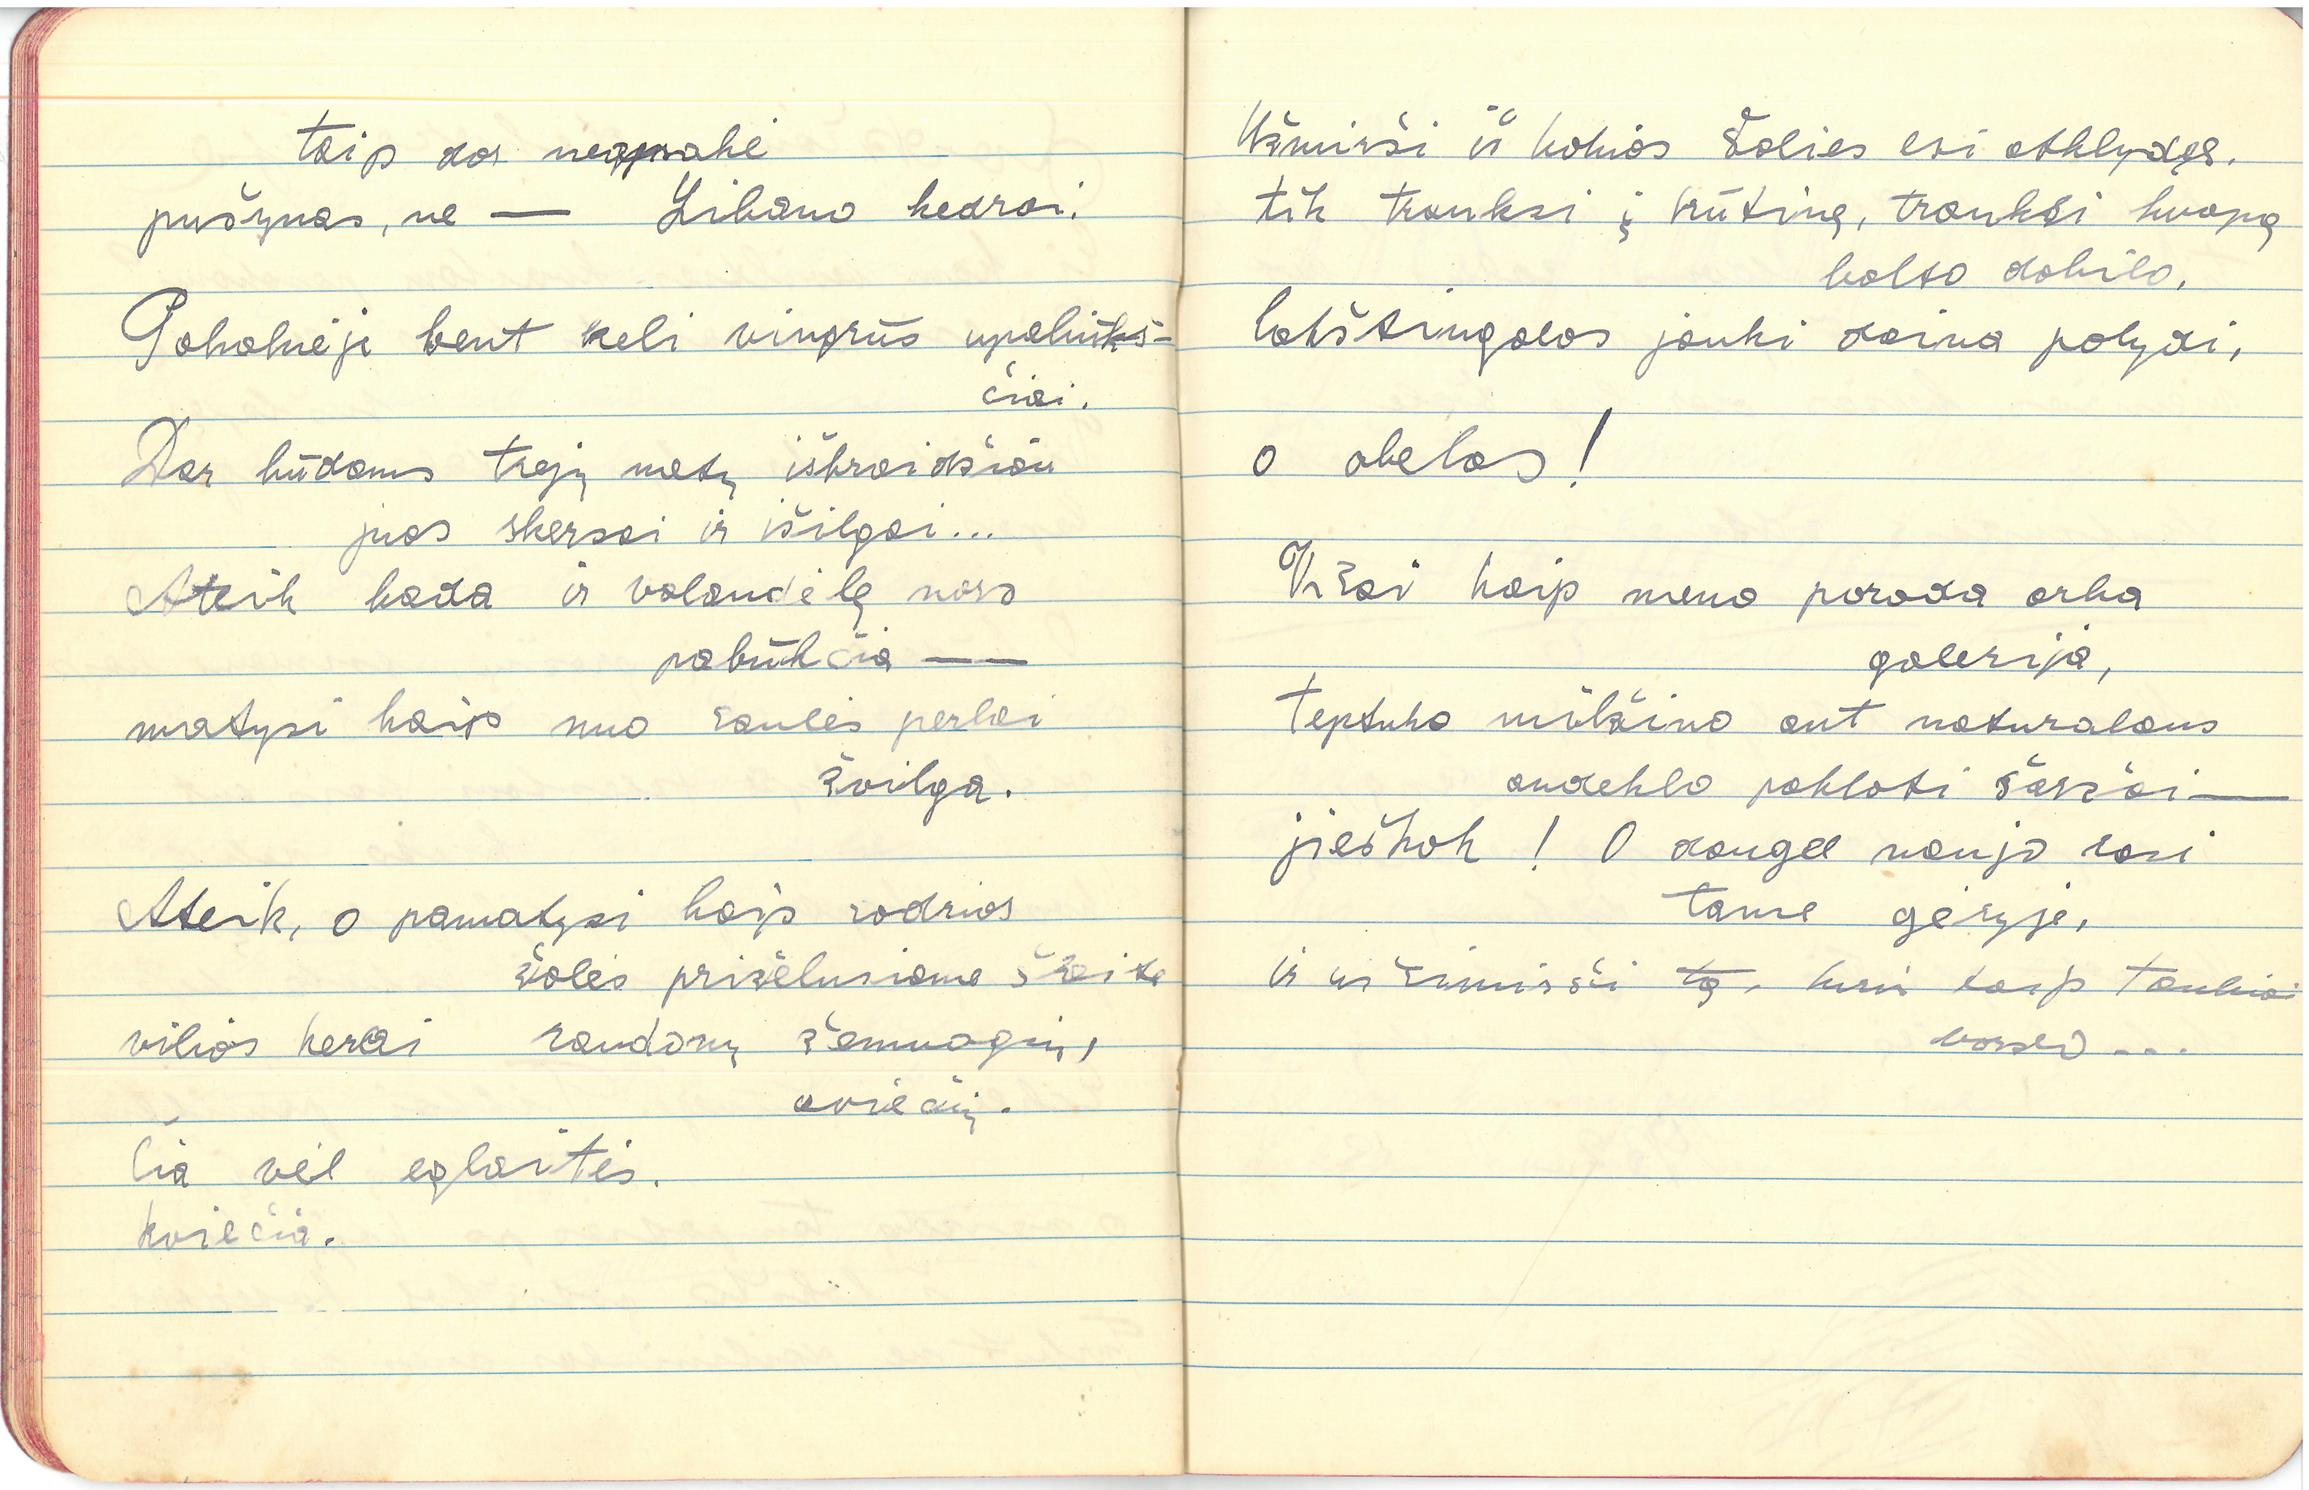 taip dar neapsakė
pušynas, ne — Libano kedrai.
Pakalnėje bent keli vingrūs upeliukš-
čiai.
Dar būdams trejų metų išbraidžiau
juos skersai ir išilgai...
Ateik kada ir valandėlę nors
pabūk čia ——
matysi kaip nuo saulės perlai
žvilga.
Ateik, o pamatysi kaip sodrios
žolės prižėlusiame šlaite
vilios kerai raudonų žemuogių,
aviečių.
Čia vėl eglaitės.
kviečia.
Užmirši iš kokios šalies esi atklydęs.
tik trauksi į krūtinę, trauksi kvapą
balto dobilo,
lakštingalos jauki daina palydi,
o abelas!
Visai kaip meno paroda arba
galerija,
teptuko milžino ant naturalaus
audeklo pakloti šaržai —
ješkok! O daugel naujo rasi
tame gėryje,
ir užsimirši tą, kuri taip tankiai
barsto ...